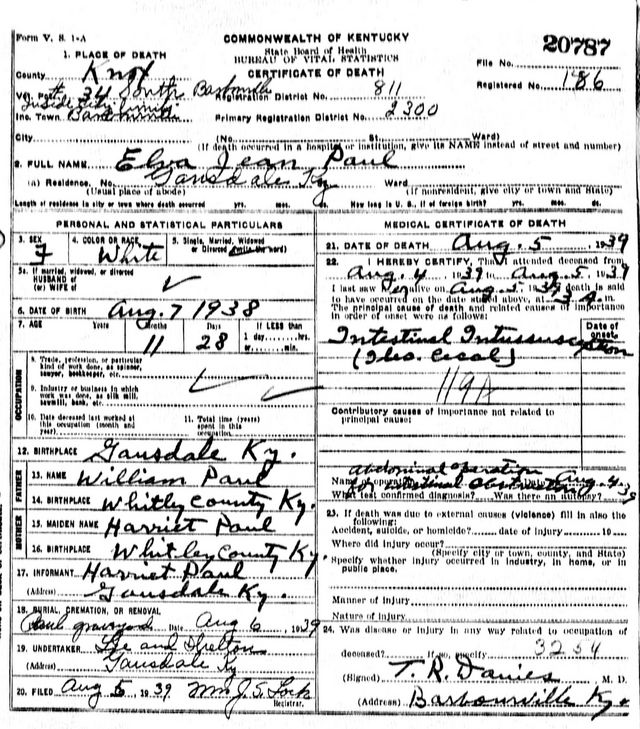 Form V. S. 1-A
COMMONWEALTH OF KENTUCKY
State Board of Health
BUREAU OF VITAL STATISTICS
CERTIFICATE OF DEATH
20787
File No.
Registered No. 186
1. PLACE OF DEATH
County Knox
Vot. Pct. # 34 South Barbourville
Registration District No. 811
Inside City limits
Inc. Town Barbourville
Primary Registration District No. 2300
City (No. St. Ward)
(If death occurred in a hospital or institution, give its NAME instead of street and number)
2. FULL NAME Elva Jean Paul
(a) Residence. No. Gausdale Ky Ward
(Usual place of abode) (If nonresident, give city or town and State)
Length of residence in city or town where death occurred yrs. mos. ds. How long in U. S., if of foreign birth? yrs. mos. ds.
PERSONAL AND STATISTICAL PARTICULARS
3. SEX 4. COLOR OR RACE 5. Single, Married, Widowed or Divorced (write the word)
F White
5a. If married, widowed, or divorced
HUSBAND of
(or) WIFE of ✓
6. DATE OF BIRTH Aug. 7 1938
7. AGE Years Months Days If LESS than
1 day,....hrs.
or....min.
11 28
OCCUPATION
8. Trade, profession, or particular
kind of work done, as spinner,
sawyer, bookkeeper, etc.
9. Industry or business in which
work was done, as silk mill,
sawmill, bank, etc.
10. Date deceased last worked at
this occupation (month and
year)
11. Total time (years)
spent in this
occupation
12. BIRTHPLACE Gausdale Ky.
FATHER
13. NAME William Paul
14. BIRTHPLACE Whitly County Ky.
MOTHER
15. MAIDEN NAME Harriet Paul
16. BIRTHPLACE Whitley County Ky.
17. INFORMANT Harriet Paul
(Address) Gausdale Ky.
18. BURIAL, CREMATION, OR REMOVAL
Paul graveyard Date Aug 6 1939
19. UNDERTAKER Lee and Shelton
(Address) Gausdale Ky
20. FILED Aug 5 1939 Mrs J. S. Lock
Registrar.
MEDICAL CERTIFICATE OF DEATH
21. DATE OF DEATH Aug. 5 1939
22. I HEREBY CERTIFY, That I attended deceased from
Aug. 4 1939 to Aug. 5 1939
I last saw alive on Aug. 5 1939 death is said
to have occurred on the date stated above, at 3 A m.
The principal cause of death and related causes of importance
in order of onset were as follows:
Date of onset
Intestinal Intussusception
(Ileo. Cecal)
119A
Contributory causes of importance not related to
principal cause:
Abdominal operation
Name of operation for intestinal obstruction Date Aug. 4 39
What test confirmed diagnosis? Was there an autopsy?
23. If death was due to external causes (violence) fill in also the
following:
Accident, suicide, or homicide? date of injury 19
Where did injury occur?
(Specify city or town, county, and State)
Specify whether injury occurred in industry, in home, or in
public place.
Manner of injury
Nature of injury
24. Was disease or injury in any way related to occupation of
deceased? If so, specify 3254
(Signed) T. R. Davies M. D.
(Address) Barbourville Ky.